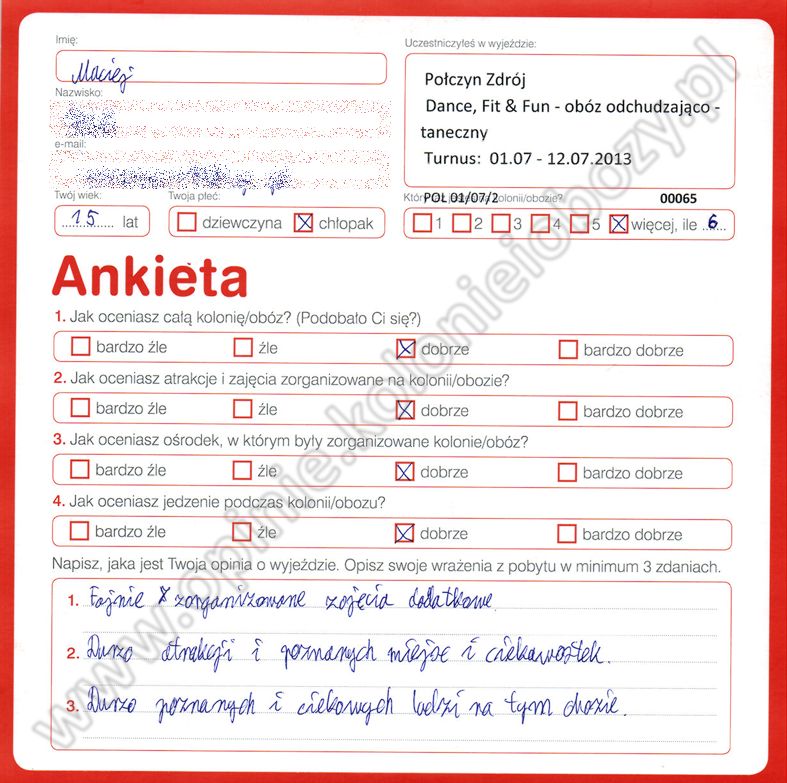 Imię:
Maciej
Nazwisko:
e-mail:
Twój wiek:
15 lat
Twoja płeć:
dziewczyna chłopak
Uczestniczyłeś w wyjeździe:
Połczyn Zdrój
Dance, Fit & Fun - obóz odchudzająco -
taneczny
Turnus: 01.07 - 12.07.2013
POL 01/07/2 00065
kolonii/obozie?
1 2 3 4 5 więcej, ile 6
Ankieta
1. Jak oceniasz całą kolonię/obóz? (Podobało Ci się?)
bardzo źle źle dobrze bardzo dobrze
2. Jak oceniasz atrakcje i zajęcia zorganizowane na kolonii/obozie?
bardzo źle źle dobrze bardzo dobrze
3. Jak oceniasz ośrodek, w którym były zorganizowane kolonie/obóz?
bardzo źle źle dobrze bardzo dobrze
4. Jak oceniasz jedzenie podczas kolonii/obozu?
bardzo źle źle dobrze bardzo dobrze
Napisz, jaka jest Twoja opinia o wyjeździe. Opisz swoje wrażenia z pobytu w minimum 3 zdaniach.
1. Fajnie zorganizowane zajęcia dodatkowe.
2. Durzo atrakcji i poznanych miejsc i ciekawostek.
3. Durzo poznanych i ciekowych ludzi na tym obozie.
www.opinie.kolonieiobozy.pl